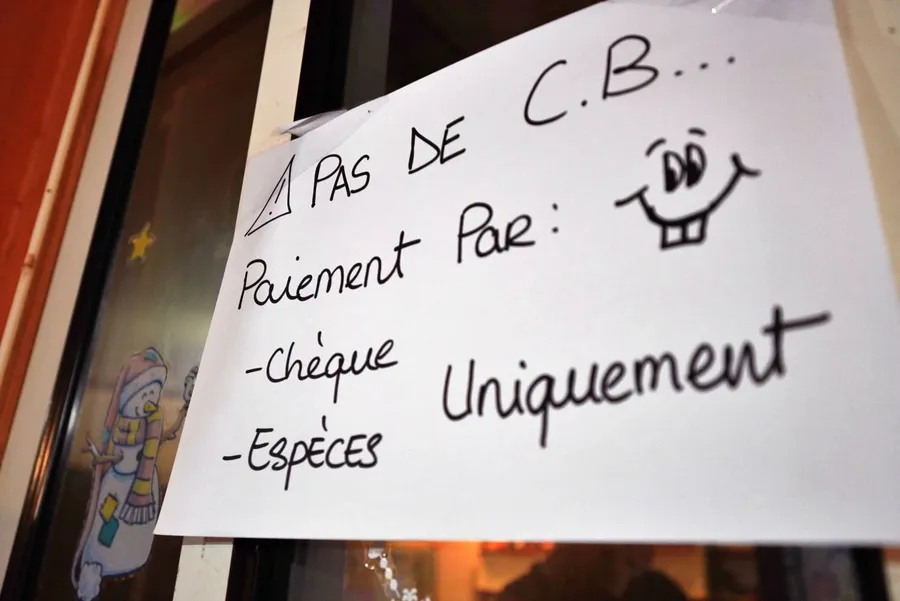 ⚠ PAS DE C.B...
Paiement Par:
-Chèque
Uniquement
-ESPÈCES